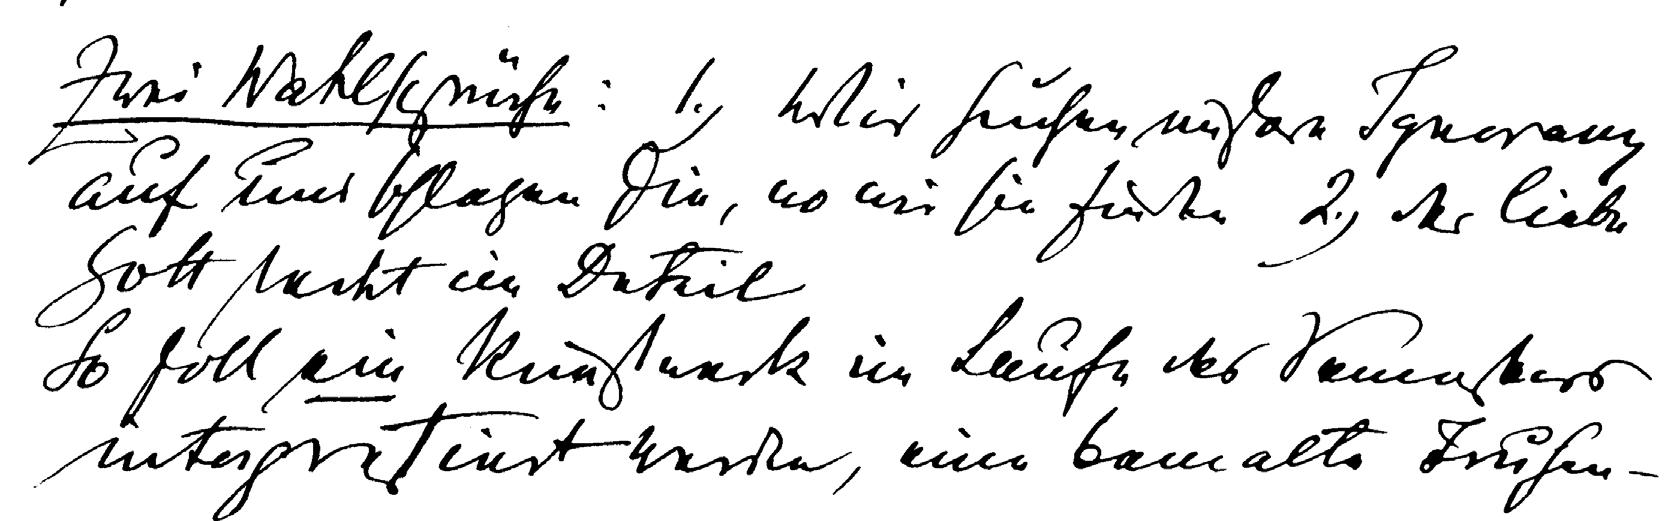 Zwei Wahlsprüche: 1., Wir suchen unsere Ignoranz
auf und schlagen Die, wo wir sie finden 2., der liebe
Gott steckt im Detail
So soll ein Kunstwerk im Laufe des Semesters
interpretiert werden, eine bemalte Truhen-